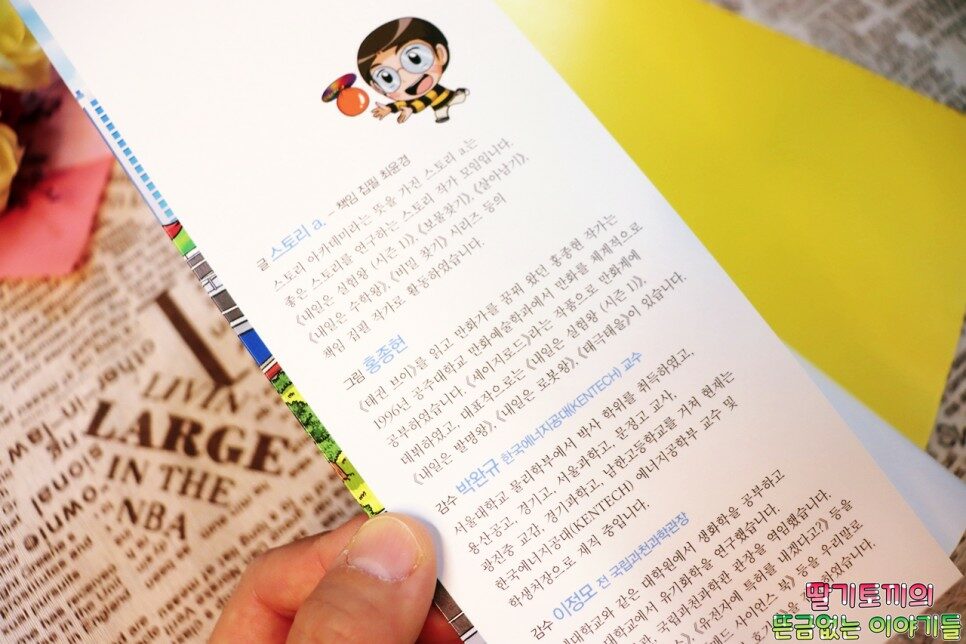 글 스토리 a. - 책임 집필 최윤경
스토리 아카데미라는 뜻을 가진 스토리 a.는
좋은 스토리를 연구하는 스토리 작가 모임입니다.
《내일은 실험왕 (시즌 1)》, 《보물찾기》, 《살아남기》,
《내일은 수학왕》, 《비밀 찾기》 시리즈 등의
책임 집필 작가로 활동하였습니다.
그림 홍종현
《태권 브이》를 읽고 만화가를 꿈꿔 왔던 홍종현 작가는
1996년 공주대학교 만화예술학과에서 만화를 체계적으로
공부하였습니다. 《세이지로드》라는 작품으로 만화계에
데뷔하였고, 대표작으로는 《내일은 실험왕 (시즌 1)》,
《내일은 발명왕》, 《내일은 로봇왕》, 《태극태율》이 있습니다.
감수 박완규 한국에너지공대(KENTECH) 교수
서울대학교 물리학부에서 박사 학위를 취득하였고,
용산공고, 경기고, 서울과학고, 문정고 교사,
광진중 교감, 경기과학고, 남한고등학교를 거쳐 현재는
한국에너지공대(KENTECH) 에너지공학부 교수 및
학생처장으로 재직 중입니다.
감수 이정모 전 국립과천과학관장
대학교와 같은 대학원에서 생화학을 공부하고
대학교에서 유기화학을 연구했습니다.
관장, 국립과천과학관 관장을 역임했습니다.
《유전자에 특허를 내겠다고?》 등을
사이언스 북》 등을 우리말로
LIVIN
LARGE
IN THE
NBA
딸기토끼의
뜬금없는 이야기들